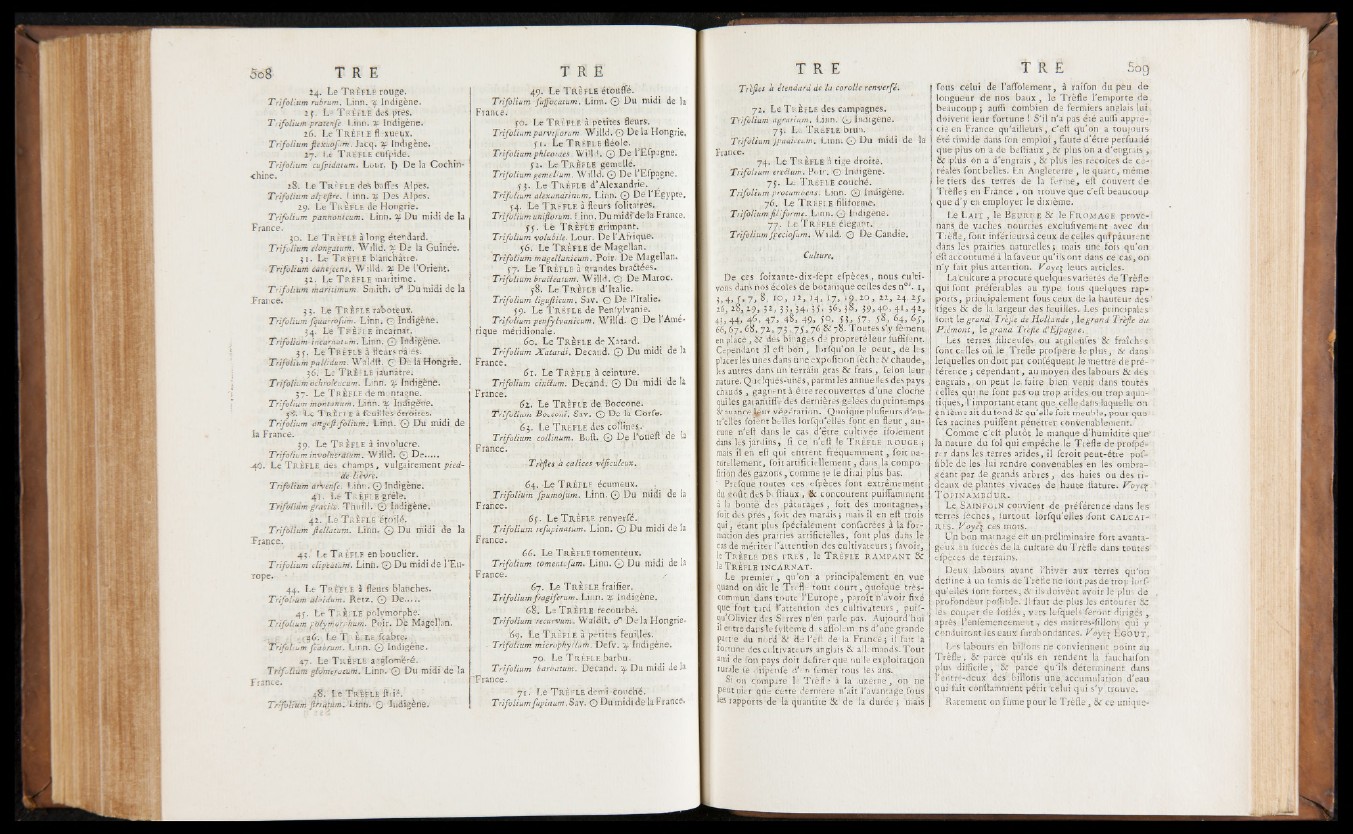 508 T R E
24. Le TRÈFLE rouge.
Trifolium rubrum. Linn. ♃ Indigène.
25. Le TRÈFLE des prés.
Trifolium pratense. Linn. ♃ Indigène.
26. Le TRÈFLE flexueux.
Trifolium flexuosum. Jacq. ♃ Indigène.
27. Le TRÈFLE cuspide.
Trifolium cuspidatum. Lour. ♄ De la Cochin-
chine.
28. Le TRÈFLE des basses Alpes.
Trifolium alpestre. Linn. ♃ Des Alpes.
29. Le TRÈFLE de Hongrie.
Trifolium pannonicum. Linn. ♃ Du midi de la
France.
30. Le TRÈFLE à long étendard.
Trifolium elongatum. Willd. ♃ De la Guinée.
31. Le TRÈFLE blanchâtre.
Trifolium canescens. Willd. ♃ De l'Orient.
32. Le TRÈFLE maritime.
Trifolium maritimum. Smith. ♂ Du midi de la
France.
33. Le TRÈFLE raboteux.
Trifolium squarrosum. Linn. ☉ Indigène.
34. Le TRÈFLE incarnat.
Trifolium incarnatum. Linn. ☉ Indigène.
35. Le TRÈFLE à fleurs pâles.
Trifolium pallidum. Waldst. ☉ De la Hongrie.
36. Le TRÈFLE jaunâtre.
Trifolium ochroleucum. Linn. ♃ Indigène.
37. Le TRÈFLE de montagne.
Trifolium montanum. Linn. ♃ Indigène.
38. Le TRÈFLE à feuilles étroites.
Trifolium angustifolium. Linn. ☉ Du midi de
la France.
39. Le TRÈFLE à involucre.
Trifolium involucratum. Willd. ☉ De.....
40. Le TRÈFLE des champs, vulgairement pied-
de lièvre.
Trifolium arvense. Linn. ☉ Indigène.
41. Le TRÈFLE grêle.
Trifolium gracile. Thuill. ☉ Indigène.
42. Le TRÈFLE étoilé.
Trifolium stellatum. Linn. ☉ Du midi de la
France.
43. Le TRÈFLE en bouclier.
Trifolium clipeatum. Linn. ☉ Du midi de l'Eu-
rope.
44. Le TRÈFLE à fleurs blanches.
Trifolium albidum. Retz. ☉ De.....
45. Le TRÈFLE polymorphe.
Trifolium polymorphum. Poir. De Magellan.
46. Le TRÈFLE scabre.
Trifolium scabrum. Linn. ☉ Indigène.
47. Le TRÈFLE aggloméré.
Trifolium glomeratum. Linn. ☉ Du midi de la
France.
48. Le TRÈFLE strié.
Trifolium striatum. Linn. ☉ Indigène.
T R E
49. Le TRÈFLE étouffé.
Trifolium suffocatum. Linn. ☉ Du midi de la
France.
50. Le TRÈFLE à petites fleurs.
Trifolium parviflorum. Willd. ☉ De la Hongrie.
51. Le TRÈFLE fléole.
Trifolium phleoides. Willd. ☉ De l'Espagne.
52. Le TRÈFLE gemelle.
Trifolium gemellum. Willd. ☉ De l'Espagne.
53. Le TRÈFLE d'Alexandrie.
Trifolium alexandrinum. Linn. ☉ De l'Égypte.
54. Le TRÈFLE à fleurs solitaires.
Trifolium uniflorum. Linn. Du midi de la France.
55. Le TRÈFLE grimpant.
Trifolium volubile. Lour. De l'Afrique.
56. Le TRÈFLE de Magellan.
Trifolium magellanicum. Poir. De Magellan.
57. Le TRÈFLE à grandes bractées.
Trifolium bracteatum. Willd. ☉ De Maroc.
58. Le TRÈFLE d'Italie.
Trifolium ligusticum. Sav. ☉ De l'Italie.
59. Le TRÈFLE de Pensylvanie.
Trifolium pensylvanicum. Willd. ☉ De l'Amé-
rique méridionale.
60. Le TRÈFLE de Xatard.
Trifolium Xatardi. Decand. ☉ Du midi de la
France.
61. Le TRÈFLE à ceinture.
Trifolium cinctum. Decand. ☉ Du midi de la
France.
62. Le TRÈFLE de Boccone.
Trifolium Bocconi. Sav. ☉ De la Corse.
63. Le TRÈFLE des collines.
Trifolium collinum. Bast. ☉ De l'ouest de la
France.
Trèfles à calices vésiculeux.
64. Le TRÈFLE écumeux.
Trifolium spumosum. Linn. ☉ Du midi de la
France.
65. Le TRÈFLE renversé.
Trifolium resupinatum. Linn. ☉ Du midi de la
France.
66. Le TRÈFLE tomenteux.
Trifolium tomentosum. Linn. ☉ Du midi de la
France.
67. Le TRÈFLE fraisier.
Trifolium fragiferum. Linn. ♃ Indigène.
68. Le TRÈFLE recourbé.
Trifolium recurvum. Waldst. ♂ De la Hongrie.
69. Le TRÈFLE à petites feuilles.
Trifolium microphyllum. Desv. ♃ Indigène.
70. Le TRÈFLE barbu.
Trifolium barbatum. Decand. ♃ Du midi de la
France.
71. Le TRÈFLE demi-couché.
Trifolium supinum. Sav. ☉ Du midi de la France.
T R E
Trèfles à étendard de la corolle renversé.
72. Le TRÈFLE des campagnes.
Trifolium agrarium. Linn. ☉ Indigène.
73. Le TRÈFLE brun.
Trifolium spadiceum. Linn. ☉ Du midi de la
France.
74. Le TRÈFLE à tige droite.
Trifolium erectum. Poir. ☉ Indigène.
75. Le TRÈFLE couché.
Trifolium procumbens. Linn. ☉ Indigène.
76. Le TRÈFLE filiforme.
Trifolium filiforme. Linn. ☉ Indigène.
77. Le TRÈFLE élégant.
Trifolium speciosum. Willd. ☉ De Candie.
Culture.
De ces soixante-dix-sept espèces, nous culti-
vons dans nos écoles de botanique celles des nos. 1,
3, 4, 5, 7, 8, 10, 12, 14, 17, 19, 20, 21, 24, 25,
26, 28, 29, 32, 33, 34, 35, 36, 38, 39, 40, 41, 42,
43, 44, 46, 47, 48, 49, 50, 53, 57, 58, 64, 65,
66, 67, 68, 72, 73, 75, 76 & 78. Toutes s'y sèment
en place, & des binages de propreté leur suffisent.
Cependant il est bon, lorsqu'on le peut, de les
placer les unes dans une exposition sèche & chaude,
les autres dans un terrain gras & frais, selon leur
nature. Quelques-unes, parmi les annuelles des pays
chauds, gagnent à être recouvertes d'une cloche
qui les garantisse des dernières gelées du printemps
& avance leur végétation. Quoique plusieurs d'en-
tr'elles soient belles lorsqu'elles sont en fleur, au-
cune n'est dans le cas d'être cultivée isolément
dans les jardins, si ce n'est le TRÈFLE ROUGE;
mais il en est qui entrent fréquemment, soit na-
turellement, soit artificiellement, dans la compo-
sition des gazons, comme je le dirai plus bas.
Presque toutes ces espèces sont extrêmement
du goût des bestiaux, & concourent puissamment
à la bonté des pâturages, soit des montagnes,
soit des prés, soit des marais; mais il en est trois
qui, étant plus spécialement consacrées à la for-
mation des prairies artificielles, sont plus dans le
cas de mériter l'attention des cultivateurs; savoir,
le TRÈFLE DES PRÉS, le TRÈFLE RAMPANT &
le TRÈFLE INCARNAT.
Le premier, qu'on a principalement en vue
quand on dit le Trèfle tout court, quoique très-
commun dans toute l'Europe, paroît n'avoir fixé
que fort tard l'attention des cultivateurs, puis-
qu'Olivier des Serres n'en parle pas. Aujourd'hui
il entre dans le système d'assolemens d'une grande
partie du nord & de l'est de la France; il fait la
fortune des cultivateurs anglais & allemands. Tout
ami de son pays doit desirer que nulle exploitation
rurale se dispense d'en semer tous les ans.
Si on compare le Trèfle à la luzerne, on ne
peut nier que cette dernière n'ait l'avantage sous
les rapports de la quantité & de la durée; mais
T R E 509
sous celui de l'assolement, à raison du peu de
longueur de nos baux, le Trèfle l'emporte de
beaucoup; aussi combien de fermiers anglais lui
doivent leur fortune! S'il n'a pas été aussi appré-
cié en France qu'ailleurs, c'est qu'on a toujours
été timide dans son emploi, faute d'être persuadé
que plus on a de bestiaux, & plus on a d'engrais,
& plus on a d'engrais, & plus les récoltes de cé-
réales sont belles. En Angleterre, le quart, même
le tiers des terres de la ferme, est couvert de
Trèfle; en France, on trouve que c'est beaucoup
que d'y en employer le dixième.
Le LAIT, le BEURRE & le FROMAGE prove-
nans de vaches nourries exclusivement avec du
Trèfle, sont inférieurs à ceux de celles qui pâturent
dans les prairies naturelles; mais une fois qu'on
est accoutumé à la saveur qu'ils ont dans ce cas, on
n'y fait plus attention. Voyez leurs articles.
La culture a procuré quelques variétés de Trèfle
qui sont préférables au type sous quelques rap-
ports, principalement sous ceux de la hauteur des
tiges & de la largeur des feuilles. Les principales
sont le grand Trèfle de Hollande, le grand Trèfle du
Piémont, le grand Trèfle d'Espagne.
Les terres siliceuses ou argileuses & fraîches
sont celles où le Trèfle prospère le plus, & dans
lesquelles on doit par conséquent le mettre de pré-
férence; cependant, au moyen des labours & des
engrais, on peut le faire bien venir dans toutes
celles qui ne sont pas ou trop arides ou trop aqua-
tiques, l'important étant que celle dans laquelle on
en sème ait du fond & qu'elle soit meuble, pour que
ses racines puissent pénétrer convenablement.
Comme c'est plutôt le manque d'humidité que
la nature du sol qui empêche le Trèfle de prospé-
rer dans les terres arides, il seroit peut-être pos-
sible de les lui rendre convenables en les ombra-
geant par de grands arbres, des haies ou des ri-
deaux de plantes vivaces de haute stature. Voyez
TOPINAMBOUR.
Le SAINFOIN convient de préférence dans les
terres sèches, surtout lorsqu'elles sont CALCAI-
RES. Voyez ces mots.
Un bon marnage est un préliminaire fort avanta-
geux au succès de la culture du Trèfle dans toutes
espèces de terrains.
Deux labours avant l'hiver aux terres qu'on
destine à un semis de Trèfle ne sont pas de trop lors-
qu'elles sont fortes, & ils doivent avoir le plus de
profondeur possible. Il faut de plus les entourer &
les couper de fossés, vers lesquels seront dirigés,
après l'ensemencement, des maîtres-sillons qui y
conduiront les eaux surabondantes. Voyez EGOUT.
Les labours en billons ne conviennent point au
Trèfle, & parce qu'ils en rendent la fauchaison
plus difficile, & parce qu'ils déterminent dans
l'entre-deux des billons une accumulation d'eau
qui fait constamment périr celui qui s'y trouve.
Rarement on fume pour le Trèfle, & ce unique-